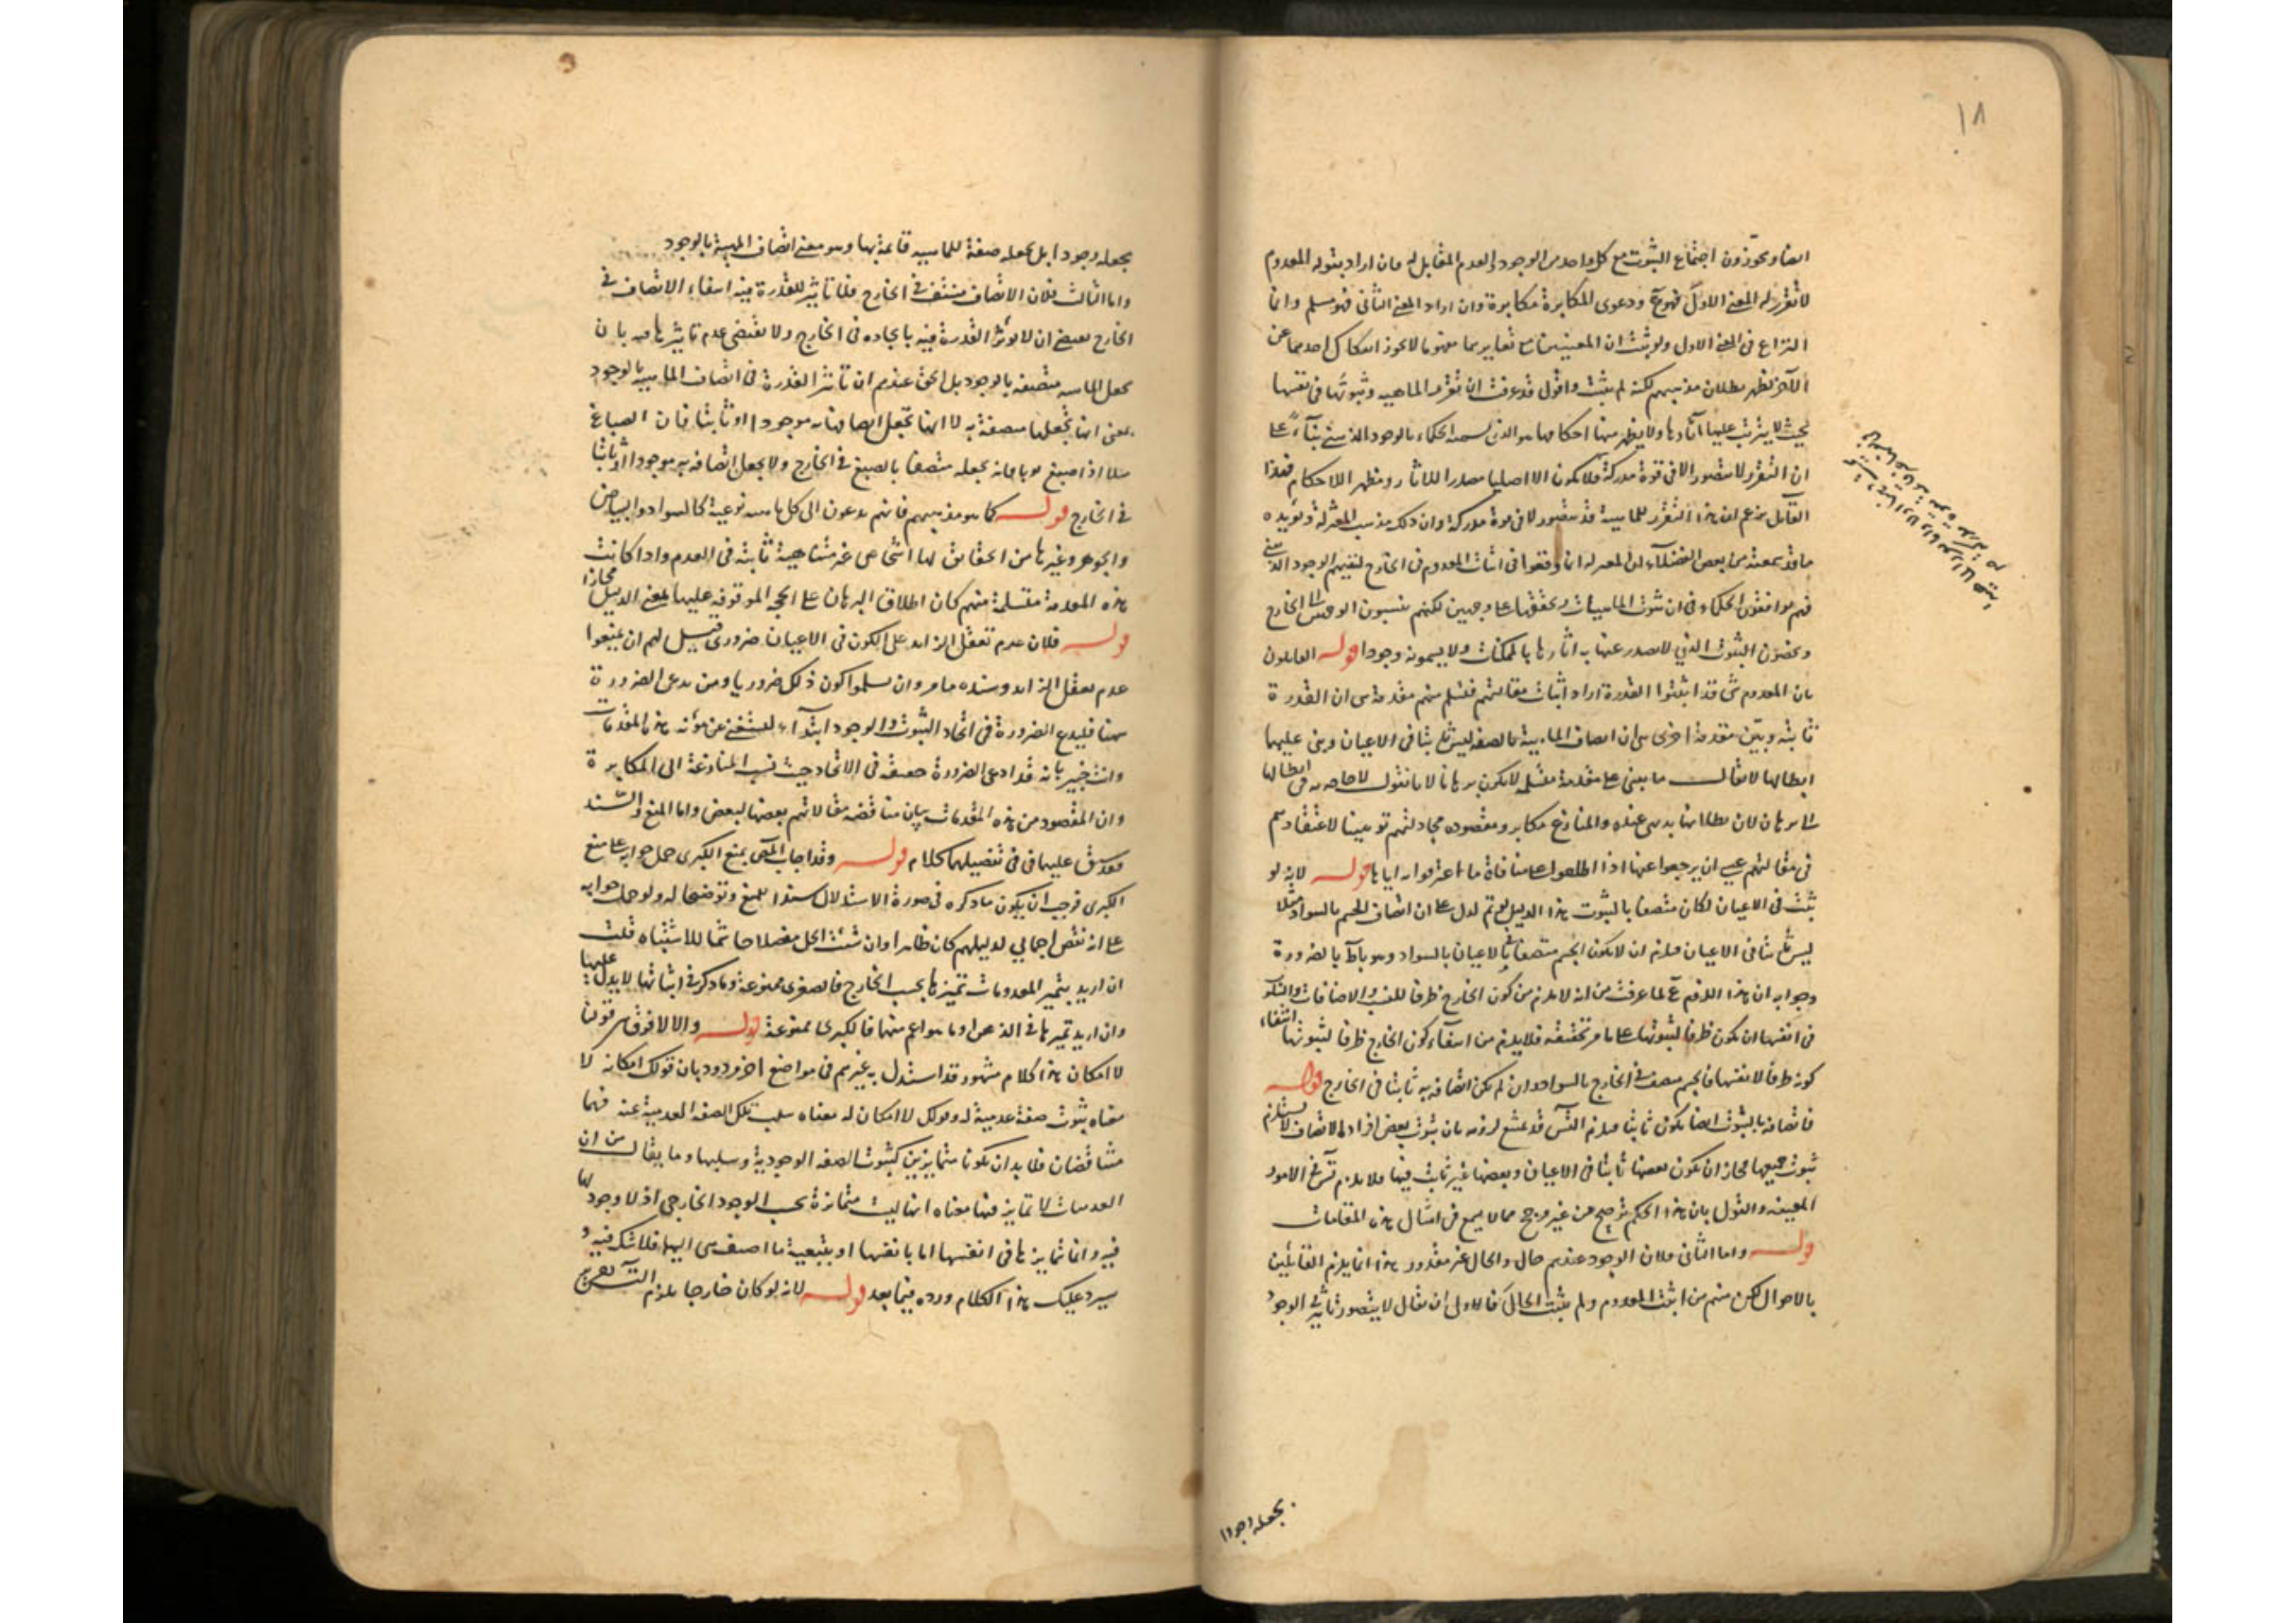 ١٨
ايضا ويجوّزون اجتماع الثبوت مع كل واحد من الوجود والعدم المقابل له فان اراد بقوله المعدوم
لا تقرر له المعنى الاول فهو ع ودعوى المكابرة مكابرة وان اراد المعنى الثاني فهو مسلم وانما
النزاع في المعنى الاول ولو ثبت ان المعنيين مع تغايرهما مفهوما لا يجوز انفكاك احدهما عن
الآخر لظهر بطلان مذهبهم لكنه لم يثبت واقول قد عرفت ان تقرر الماهية وثبوتها في نفسها
بحيث لا يترتب عليها آثارها ولا يظهر منها احكامها هو الذي يسميه الحكماء بالوجود الذهني بناءً على
ان التقرر لا يتصور الا في قوة مدركة فلا يكون الا اصليا مصدرا للآثار ومظهر للاحكام فهذا
القائل يزعم ان هذا التقرر للماهية قد يتصور لا في قوة مدركة وان ذلك مذهب المعتزلة ويؤيده
ما قد سمعته من بعض الفضلاء ان المعتزلة انما وقعوا في اثبات المعدوم في الخارج لنفيهم الوجود الذهني
فهم موافقون الحكماء في ان ثبوت الماهيات وتحققها على وجهين لكنهم ينسبون الوجهين الى الخارج
ويخصّون الثبوت الذي لا يصدر عنها به آثارها بالممكنات ولا يسمونه وجودا قوله القائلون
بان المعدوم شئ قد اثبتوا القدرة اراد اثبات مقالتهم فتسلم منهم مقدمة هي ان القدرة
ثابتة وبيّن مقدمة اخرى هي ان اتصاف الماهية بالصفة ليس ثابتا في الاعيان وبنى عليهما
ابطالها لا يقال ما يبنى على مقدمة مسلمة لا يكون برهانا لانا نقول لا حاجة في ابطالها
الى برهان لان بطلانها بديهي عنده والمنازع مكابر ومقصوده مجادلتهم توهينا لاعتقادهم
في مقالتهم عسى ان يرجعوا عنها اذا اطلعوا على منافاة ما اعترفوا به اياها قوله لانه لو
ثبت في الاعيان لكان متصفا بالثبوت هذا الدليل لو تم لدل على ان اتصاف الجسم بالسواد مثلا
ليس ثابتا في الاعيان فيلزم ان لا يكون الجسم متصفا في الاعيان بالسواد وهو باطل بالضرورة
وجوابه ان هذا اللازم ع لما عرفت من انه لا يلزم من كون الخارج ظرفا للنسب والاضافات
في انفسها ان يكون ظرفا لثبوتها على ما مر تحقيقه فلا يلزم من انتفاء كون الخارج ظرفا لثبوتها انتفاء
كونه ظرفا لانفسها فالجسم متصف في الخارج بالسواد وان لم يكن اتصافه به ثابتا في الخارج قوله
فاتصافه بالثبوت ايضا يكون ثابتا فيلزم التس قد يمنع لزومه بان ثبوت بعض افراد الاتصاف لا يستلزم
ثبوت جميعها فجاز ان يكون بعضها ثابتا في الاعيان وبعضها غير ثابت فيها فلا يلزم تس في الامور
المعينة والقول بان هذا الحكم ترجيح من غير مرجح مما لا يسمع في امثال هذه المقامات
قوله واما الثاني فلان الوجود عندهم حال والحال غير مقدور هذا انما يلزم القائلين
بالاحوال لكن منهم من اثبت المعدوم ولم يثبت الحال فالاولى ان يقال لا يتصور تاثير في الوجود
بجعله وجودا
بجعله وجودا بل بجعله صفة للماهية قائمة بها وهو معنى اتصاف الماهية بالوجود
واما الثالث فلان الاتصاف منتف في الخارج فلا تاثير للقدرة فيه انتفاء الاتصاف في
الخارج يقتضي ان لا يؤثر القدرة فيه بايجاده في الخارج ولا يقتضي عدم تاثيرها فيه بان
يجعل الماهية متصفة بالوجود بل الحق عندهم ان تاثير القدرة في اتصاف الماهية بالوجود
بمعنى انها تجعلها متصفة به لا انها تجعل اتصافها به موجودا او ثابتا فان الصباغ
مثلا اذا صبغ ثوبا فانه يجعله متصفا بالصبغ في الخارج ولا يجعل اتصافه به موجودا او ثابتا
في الخارج قوله كما هو مذهبهم فانهم يدعون ان لكل ماهية نوعية كالسواد والبياض
والجوهر وغيرها من الحقائق لها اشخاص غير متناهية ثابتة في العدم واذا كانت
هذه المقدمة متسلمة منهم كان اطلاق البرهان على الحجة الموقوفة عليها بمعنى الدليل مجازا
قوله فلان عدم تعقل الزائد على الكون في الاعيان ضروري قيل لهم ان يمنعوا
عدم تعقل الزائد وسنده ما مر وان سلموا كون ذلك ضروريا ومن يدعى الضرورة
ههنا فليدع الضرورة في اتحاد الثبوت والوجود ابتداء ليستغني عن مؤنة هذه المقدمات
وانت خبير بانه قد ادعى الضرورة حقيقة في الاتحاد حيث نسب المنازعة الى المكابرة
وان المقصود من هذه المقدمات بيان مناقضة مقالاتهم بعضها لبعض واما المنع والسند
فقد سبق عليهما في تفصيلهما كلام قوله وقد اجاب المص بمنع الكبرى حمل جوابه على منع
الكبرى فوجب ان يكون ما ذكره في صورة الاستدلال سندا للمنع وتوضيحا له ولو حمل جوابه
على انه نقض اجمالي لدليلهم كان ظاهرا وان شئت الحل مفصلا حاسما للاشتباه قلت
ان اريد بتميز المعدومات تميزها بحسب الخارج فالصغرى ممنوعة وما ذكر في اثباتها لا يدل عليها
وان اريد تميزها في الذهن او ما هو اعم منهما فالكبرى ممنوعة قوله والا لا فرق بين قولنا
لا امكان هذا كلام مشهور قد استدل به غيرهم في مواضع اخر وردود بان قولك امكانه لا
معناه ثبوت صفة عدمية له وقولك لا امكان له معناه سلب تلك الصفة العدمية عنه فهما
متناقضان فلا بد ان يكونا متمايزين كثبوت الصفة الوجودية وسلبها وما يقال من ان
العدمات لا تمايز فيها معناه انها ليست متمايزة بحسب الوجود الخارجي اذ لا وجود لها
فيه وانما تمايزها في انفسها اما بانفسها او بتبعية ما اضيف هي اليها فلا شك فيه و
سيرد عليك هذا الكلام ورده فيما بعد قوله لانه لو كان خارجا يلزم